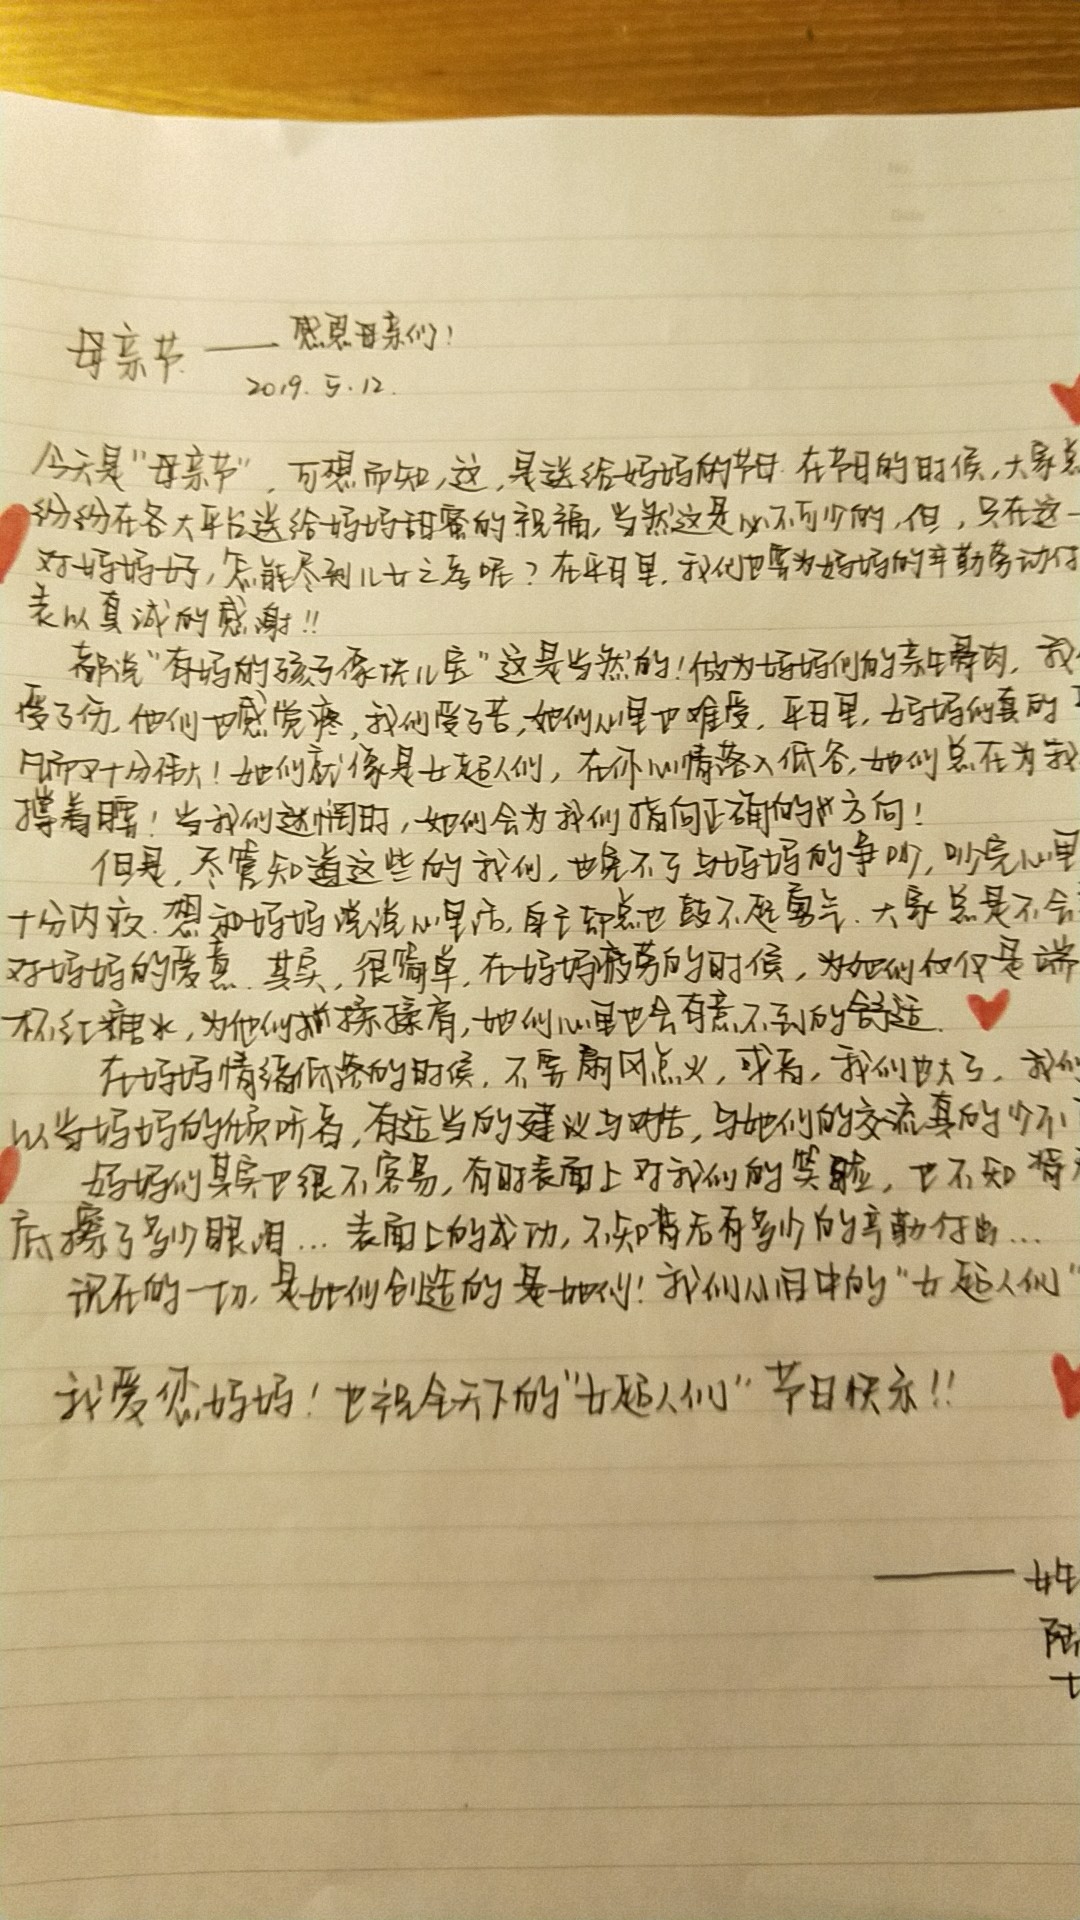 母亲节——感恩母亲们!
2019.5.12.
今天是"母亲节",可想而知,这,是送给妈妈的节日.在节日的时候,大家总
纷纷在各大平台送给妈妈甜蜜的祝福,当然这是必不可少的,但,只在这一
对妈妈好,怎能尽到儿女之孝呢?在平日里,我们也要为妈妈的辛勤劳动付
表以真诚的感谢!!
都说"有妈的孩子像块儿宝"这是当然的!做为妈妈们的亲生骨肉,我们
受了伤,他们也感觉疼,我们受了苦,她们心里也难受,平日里,妈妈们真的
凡而又十分伟大!她们就像是女超人们,在你心情落入低谷,她们总在为我
撑着腰!当我们迷惘时,她们会为我们指向正确的方向!
但是,尽管知道这些的我们,也免不了与妈妈的争吵,吵完心里
十分内疚.想和妈妈说说心里话,自己却点也鼓不起勇气.大家总是不会
对妈妈的爱意.其实,很简单,在妈妈疲劳的时候,为她们仅仅是端
杯红糖水,为他们揉揉肩,她们心里也会有意不到的舒适.
在妈妈情绪低落的时候,不要扇风点火,或者,我们也大了,我们
以当妈妈的倾听者,有适当的建议与劝告,与她们的交流真的少不
妈妈们其实也很不容易,有时表面上对我们的笑脸,也不知背
底擦了多少眼泪...表面上的成功,不知背后有多少的辛勤付出...
现在的一切,是她们创造的是她们!我们心目中的"女超人们"
我爱您妈妈!也祝全天下的"女超人们"节日快乐!!